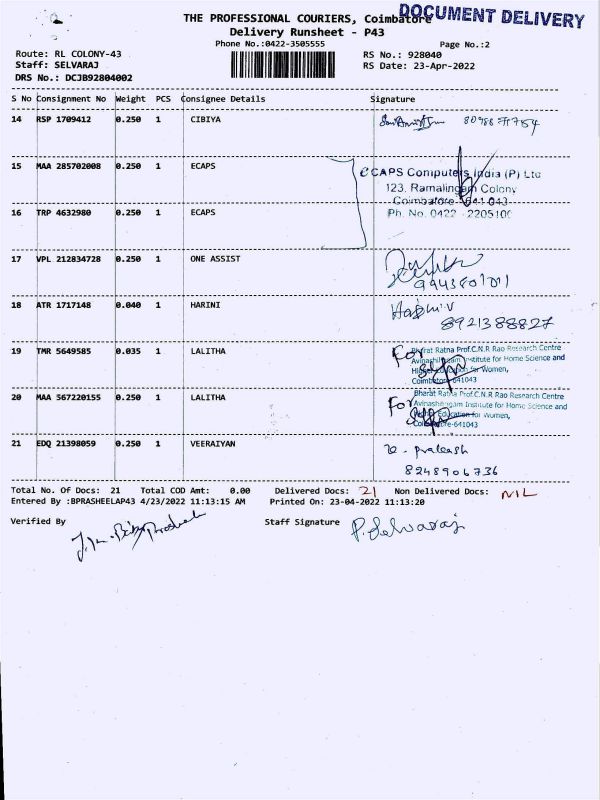 DOCUMENT DELIVERY
THE PROFESSIONAL COURIERS, Coimbatore
Delivery Runsheet - P43
Phone No.:0422-3505555
Page No.:2
Route: RL COLONY-43
RS No.: 928040
Staff: SELVARAJ
RS Date: 23-Apr-2022
DRS No.: DCJB92804002
S No Consignment No Weight PCS Consignee Details Signature
14 RSP 1709412 0.250 1 CIBIYA
15 MAA 285702008 0.250 1 ECAPS
eCAPS Computers India (P) Ltd
123, Ramalingam Colony
Coimbatore - 641 043
16 TRP 4632980 0.250 1 ECAPS
Ph. No. 0422 - 2205100
17 VPL 212834728 0.250 1 ONE ASSIST
18 ATR 1717148 0.040 1 HARINI
8921388827
19 TMR 5649585 0.035 1 LALITHA
For
Bharat Ratna Prof.C.N.R Rao Research Centre
Avinashilingam Institute for Home Science and
Higher Education for Women,
Coimbatore-641043
20 MAA 567220155 0.250 1 LALITHA
For
Bharat Ratna Prof.C.N.R Rao Research Centre
Avinashilingam Institute for Home Science and
Higher Education for Women,
Coimbatore-641043
21 EDQ 21398059 0.250 1 VEERAIYAN
8248906736
Total No. Of Docs: 21 Total COD Amt: 0.00 Delivered Docs: 21 Non Delivered Docs: NIL
Entered By :BPRASHEELAP43 4/23/2022 11:13:15 AM Printed On: 23-04-2022 11:13:20
Verified By
Staff Signature P. Selvaraj